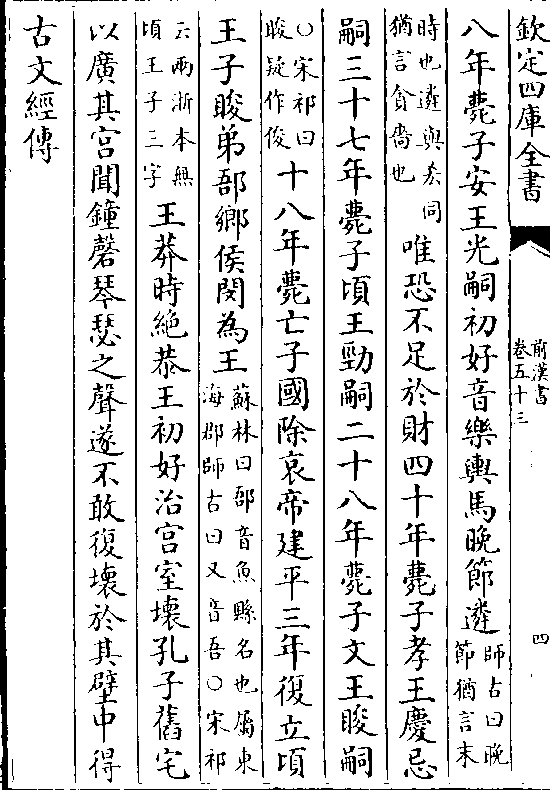 欽定四庫全書
前漢書
卷五十三
四
八年薨子安王光嗣初好音樂輿馬晚節遴
師古曰晚
節猶言末
時也遴與吝同
猶言貪嗇也
唯恐不足於財四十年薨子孝王慶忌
嗣三十七年薨子頃王勁嗣二十八年薨子文王睃嗣
○宋祁曰
睃疑作俊
十八年薨亡子國除哀帝建平三年復立頃
王子睃弟郚鄉侯閔為王
蘇林曰郚音魚縣名也屬東
海郡師古曰又音吾○宋祁
云兩浙本無
頃王子三字
王莽時絶恭王初好治宫室壊孔子舊宅
以廣其宫聞鐘磬琴瑟之聲遂不敢復壊於其壁中得
古文經傳